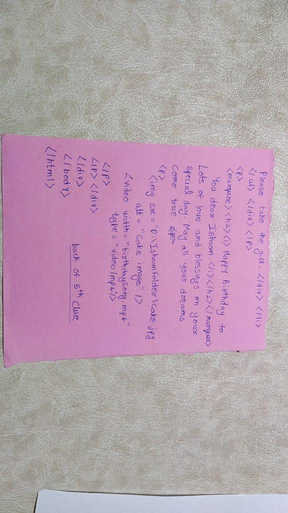 Please take the gift </div> </li>
</ul> </div> </p>
<p>
<marquee> <h2> <i> Happy Birthday to
You dear Ishaan </i> </h2> </marquee>
Lots of love and blessings on your
special day. May all your dreams
come true
<p>
<img src = "D:\ Ishaan folder\cake.jpg
alt = "Cake image" />
<video width= "birthdaysong.mp4"
type= "video/mp4">
</p>
</p> </div>
</div>
</body>
</html>
back of 5th clue